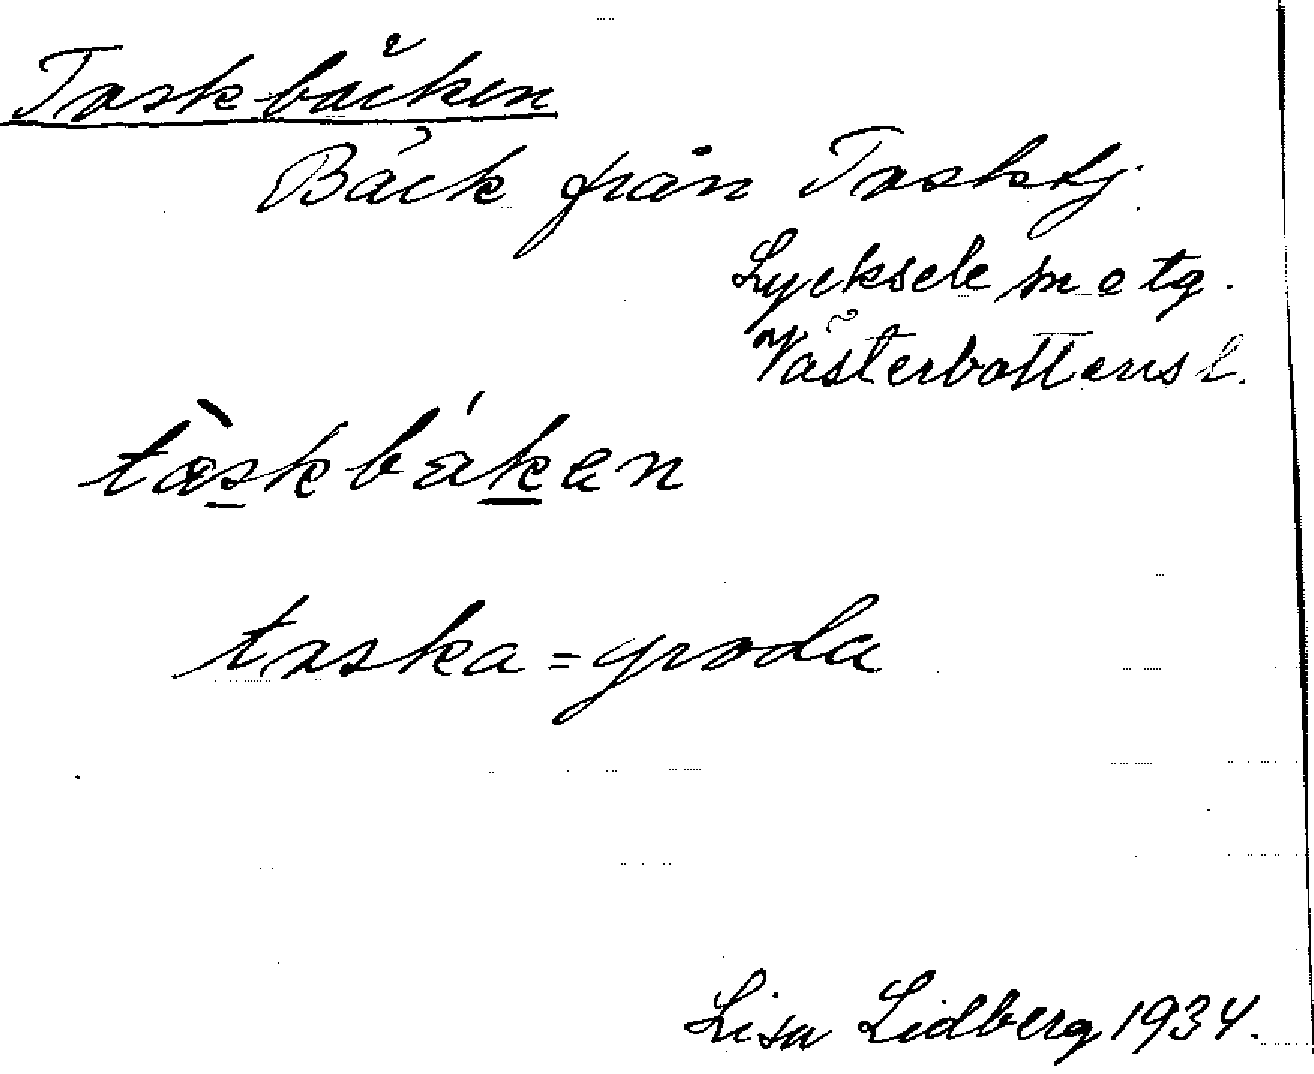 Toskbäcken
Bäck från Tosktj.
Lycksele sn o tg.
Västerbottens l.
tòskbákan
toska = groda
Lisa Lidberg 1934.